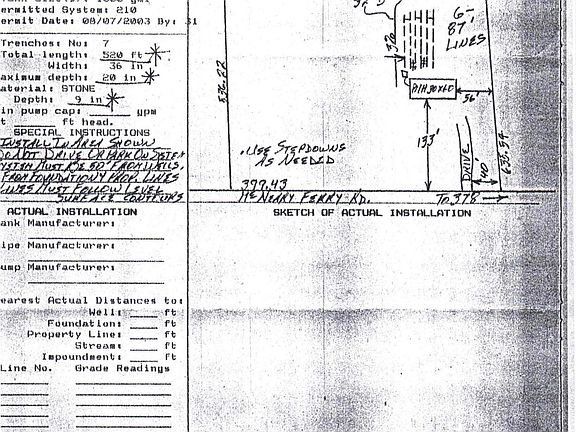 ermitted System: 210
ermit Date: 08/07/2003 By:
Trenches: No: 7
Total length: 520 ft
Width: 36 in
aximum depth: 20 in
aterial: STONE
Depth: 9 in
in pump cap: ____ gpm
t ____ ft head.
SPECIAL INSTRUCTIONS
INSTALL IN AREA SHOWN
DO NOT DRIVE OR PARK ON SYSTEM
SYSTEM MUST BE 50' FROM WELLS,
FROM FOUNDATION & PROP. LINES
LINES MUST FOLLOW LEVEL
SURFACE CONTOURS
ACTUAL INSTALLATION
ank Manufacturer:
ipe Manufacturer:
ump Manufacturer:
earest Actual Distances to:
Well: ____ ft
Foundation: ____ ft
Property Line: ____ ft
Stream: ____ ft
Impoundment: ____ ft
Line No. Grade Readings
6-
87'
LINES
56'
133'
DRIVE
40'
USE STEPDOWNS
AS NEEDED
399.43
McNEARY FERRY RD.
TO 378
SKETCH OF ACTUAL INSTALLATION